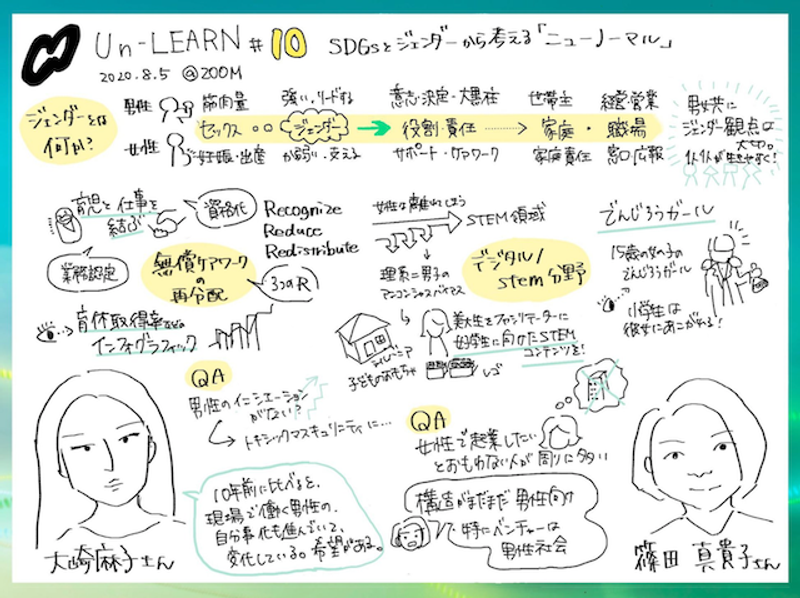 Un-LEARN #10 SDGsとジェンダーから考える「ニューノーマル」
2020.8.5 @ZOOM
ジェンダーとは
何か?
男性
女性
筋肉量
セックス
妊娠・出産
強い・リードする
ジェンダー
か弱い・支える
意志・決定・大黒柱
役割・責任
サポート・ケアワーク
世帯主
家庭・
家庭責任
経営・営業
職場
窓口・広報
男女共に
ジェンダー観点は
大切。
育児と仕事を
結ぶ
資格化
業務認定
無償ケアワーク
の
再分配
Recognize
Reduce
Redistribute
3つのR
育休取得率などの
インフォグラフィック
女性は離れてしまう
STEM領域
理系=男子の
アンコンシャスバイアス
デジタル/
stem分野
美大生をファシリテーターに
女学生に向けたSTEM
コンテンツを!
子どものおもちゃ
レゴ
でんじろうガール
15歳の女の子の
でんじろうガール
小学生は
彼女にあこがれる!
QA
男性のイニシエーション
がない?
トキシックマスキュリニティに…
10年前に比べると、
現場で働く男性の
自分事化も進んでいて、
変化している。希望がある。
QA
女性で起業したい
とおもわない人が周りに多い
構造がまだまだ男性向け
特にベンチャーは
男性社会
大崎麻子さん
篠田 真貴子さん